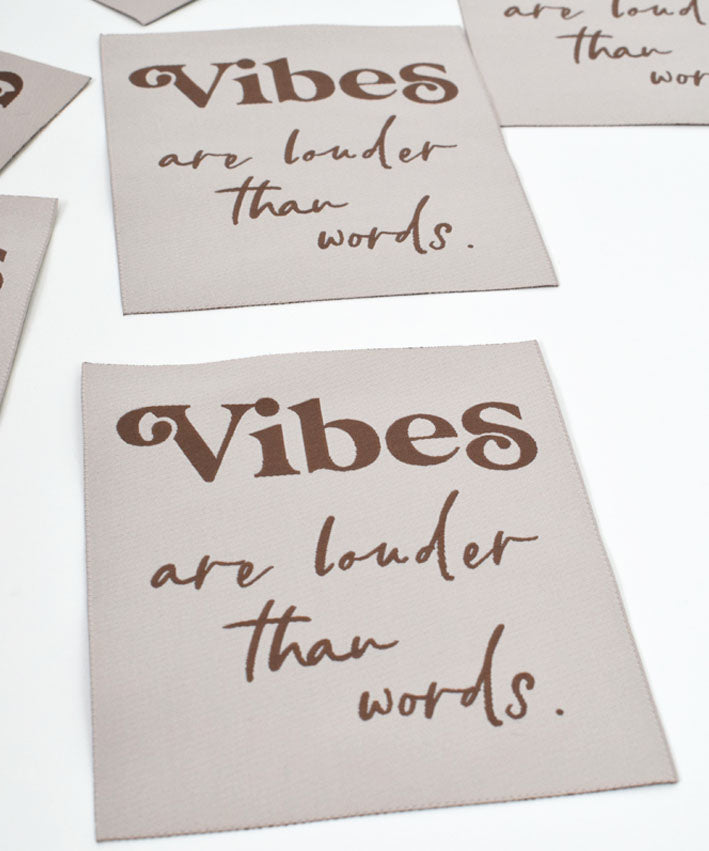 are loud
than
wor
Vibes
are louder
than
words.
Vibes
are louder
than
words.